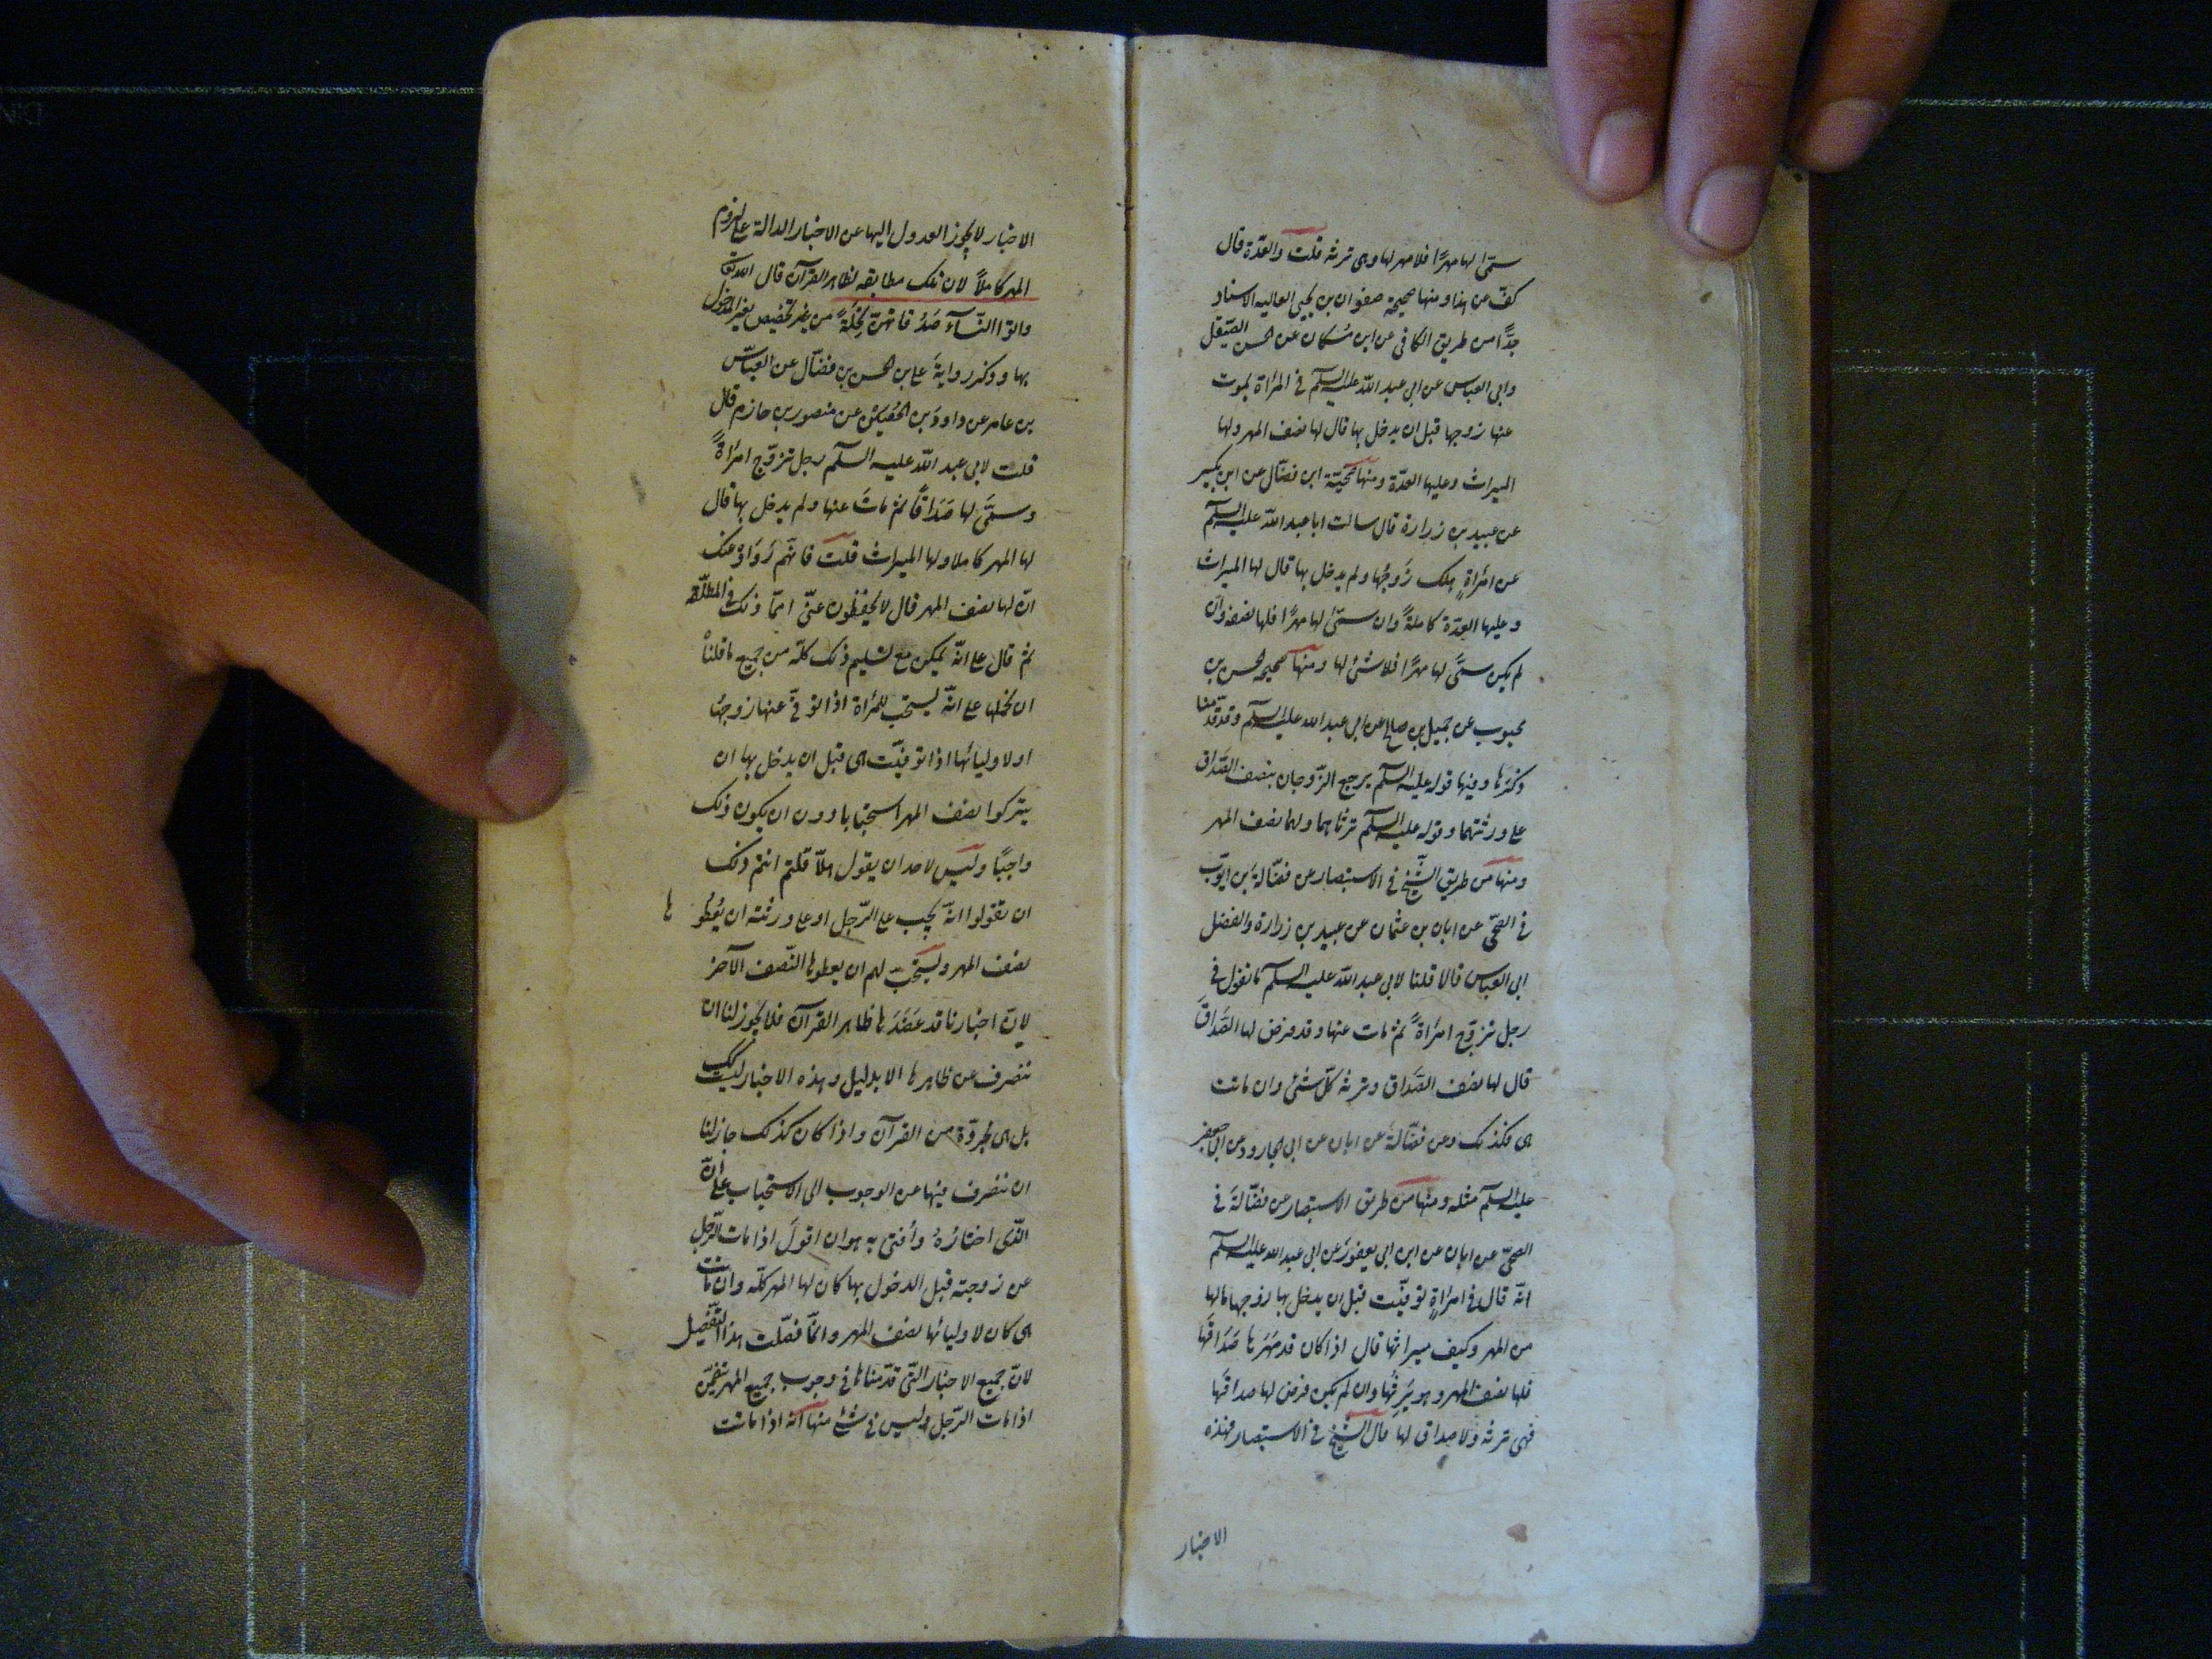 سمّى لها مهرًا فلا مهر لها وهى ترثه قلت والعدّة قال
كفّ عن هذا ومنها صحيحة صفوان بن يحيى العاليه الاسناد
جدًّا من طريق الكافى عن ابن مسكان عن الحسن الصيقل
وابى العباس عن ابى عبد اللّه عليه السلم فى المرأة يموت
عنها زوجها قبل ان يدخل بها قال لها نصف المهر ولها
الميراث وعليها العدّة ومنها ابن فضّال عن ابن بكير
عن عبيد بن زرارة قال سالت ابا عبد اللّه عليه السلم
عن امرأةٍ هلك زَوجُها ولم يدخل بها قال لها الميراث
وعليها العدّة كاملةً وان سمّى لها مهرًا فلها نصفه وان
لم يكن سمَّى لها مهرًا فلا شئ لها ومنها صحيحه الحسن بن
محبوب عن جميل بن صالح عن ابى عبد الله عليه السلم وقد قدّمنا
ذكرَها وفيها قوله عليه السلم يرجع الزّوجان بنصف الصَّداق
على ورثتهما وقوله عليه السلم ترثانهما ولهما نصف المهر
ومنها من طريق الشّيخ فى الاستبصار عن فضّالة بن ايّوب
فى الصحّى عن ابان بن عثمان عن عبيد بن زرارة والفضل
ابى العباس قالا قلنا لابى عبد اللّه عليه السلم ما تقول فى
رجل تزوّج امرأةً ثم مات عنها وقد فرض لها الصَّداقَ
قال لها نصف الصَّداق وترثه كلّ شئ وان ماتت
هى فكذلك وعن فضّالة عن ابان عن ابى الجارود عن ابى جعفر
عليه السلم مثله ومنها من طريق الاستبصار عن فضّالةَ فى
الصحّى عن ابان عن ابن ابى يعفور عن ابى عبد الله عليه السلم
انّه قال فى امرأةٍ توفيّت قبل ان يدخل بها زوجها ما لها
من المهر وكيف ميراثها قال اذا كان قد مَهَرَها صَدَاقَها
فلها نصف المهر وهو يَرِثُها وان لم يكن فرض لها صداقَها
فهى ترثه ولا صداق لها قال الشّيخ فى الاستبصار فهذه
الاخبار
الاخبار لا يجوز العدول اليها عن الاخبار الدالة على لزوم
المهر كاملاً لان تلك مطابقه لظاهر القرآن قال الله تعا
واتوا النّسآء صَدُقاتهنّ نحْلةً من غير تخصيص بغير المدخول
بها وذكر روايةَ على بن الحسن بن فضّال عن العبّاس
بن عامر عن داودَ بن الحُصَين عن منصور بن حازم قال
قلت لابى عبد اللّه عليه السلم رجل تزوّج امرأةً
وسمَّى لها صَدَاقًا ثم ماتَ عنها ولم يدخل بها قال
لها المهر كاملا ولها الميراث قلت فانّهم رَوَوْا عنك
انّ لها نصف المهر قال لا يحفظون عنّى انمّا ذلك فى المطلّقه
ثم قال على انّه يمكن مع تسليم ذلك كلّه من جميع ما قلنا
ان نحملها على انّه يستحبّ للمرأة اذا توفّى عنها زوجها
او لاوليائها اذا توفيّت هى قبل ان يدخل بها ان
يتركوا نصف المهر استحبابا دون ان يكون ذلك
واجبًا وليس لاحد ان يقول هلاّ قلتم انتم ذلك
ان تقولوا انّه يجب على الرّجل او على ورثته ان يُعطُوها
نصف المهر ويستحبّ لهم ان يعطوها النّصف الآخر
لانّ اخبارنا قد عضدَها ظاهر القرآن فلا يجوز لنا ان
ننصرف عن ظاهرها الا بدليل وهذه الاخبار ليست كذلك
بل هى مجرّدة من القرآن واذا كان كذلك جاز لنا
ان ننصرف فيها عن الوجوب الى الاستحباب على انّ
الّذى اختارُهُ وأفتى به هو ان اقولَ اذا مات الرّجل
عن زوجته قبل الدخول بها كان لها المهر كلّه وان ماتت
هى كان لاوليائها نصف المهر وانمّا فصّلت هذا التّفصيل
لانّ جميع الاخبار التّى قدّمناها فى وجوب جميع المهر تتضمّن
اذا مات الرّجل وليس فى شئ منها انّه اذا ماتت